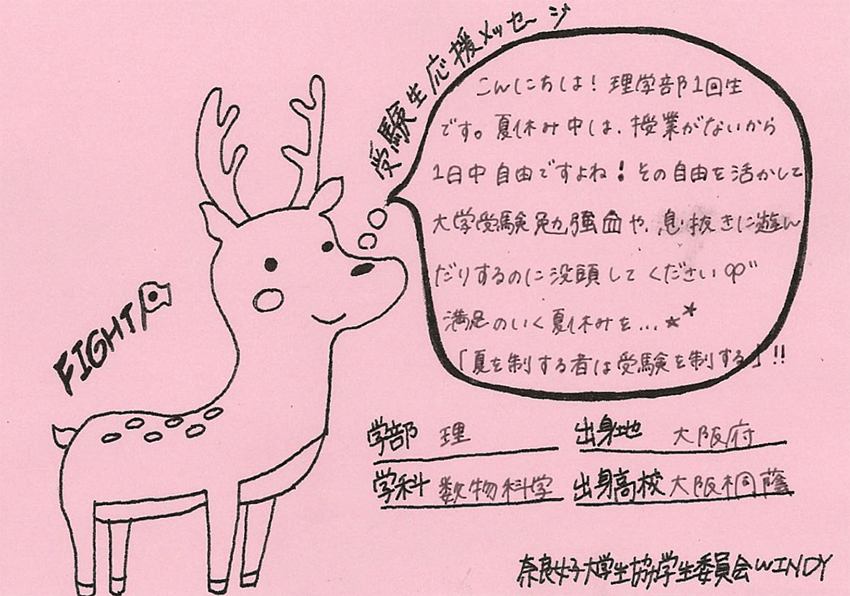 受験生応援メッセージ
こんにちは！理学部1回生
です。夏休み中は、授業がないから
1日中自由ですよね！その自由を活かして
大学受験勉強や、息抜きに遊ん
だりするのに没頭してください
満足のいく夏休みを…★*
「夏を制する者は受験を制する」!!
FIGHT
学部 理
出身地 大阪府
学科 数物科学
出身高校 大阪桐蔭
奈良女子大学生協学生委員会WINDY